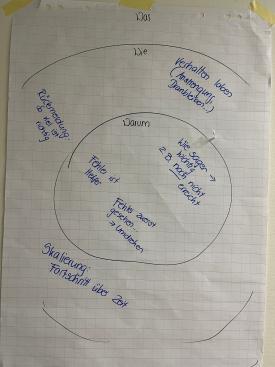 Das
Die
Verhalten loben
(Anstrengung,
Dranbleiben...)
Rückmeldung:
so viel ist
richtig
Darum
Wie sagen →
wichtig
z.B. noch nicht
erreicht
Fehler ist
Helfer
Fehler zuerst
gesehen...
→ Umdrehen
Skalierung:
Fortschritt über Zeit